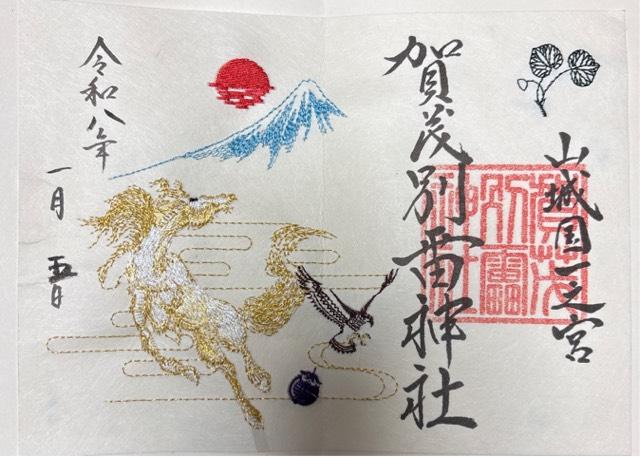 山城国一之宮
賀茂別雷神社
令和八年
一月五日
賀茂別雷神社